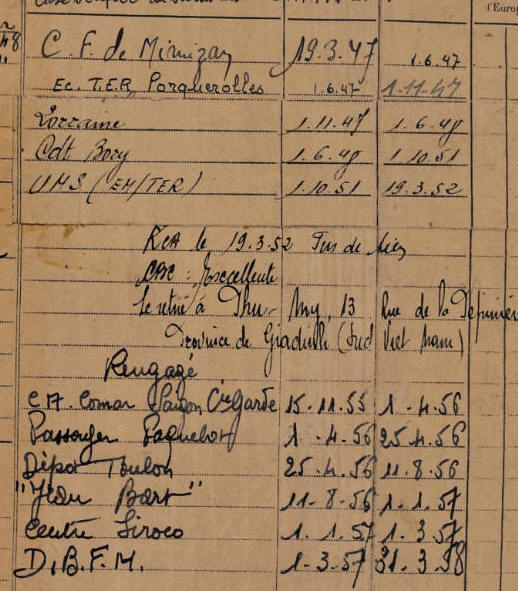 d'Europ
C. F. de Mimizan 19.3.47 1.6.47
Ec. T.E.R. Porquerolles 1.6.47 1-11-47
Lorraine 1.11.47 1.6.49
Cdt Bory 1.6.49 1.10.51
UMS (EM/TER) 1.10.51 19.3.52
RCA le 19.3.52 Fin de lien
CBC : Excellente
Se retire à Thu- My, 13 Rue de la Pépinière
Province de Giadinh (Sud Viet Nam)
Rengagé
C.A. Comar Saïgon Cie Garde 15.11.55 1.4.56
Passager Paquebot 1.4.56 25.4.56
Dépot Toulon 25.4.56 11.8.56
"Jean Bart" 11-8-56 1.1.57
Centre Siroco 1.1.57 1.3.57
D.B.F.M. 1-3-57 31.3.58